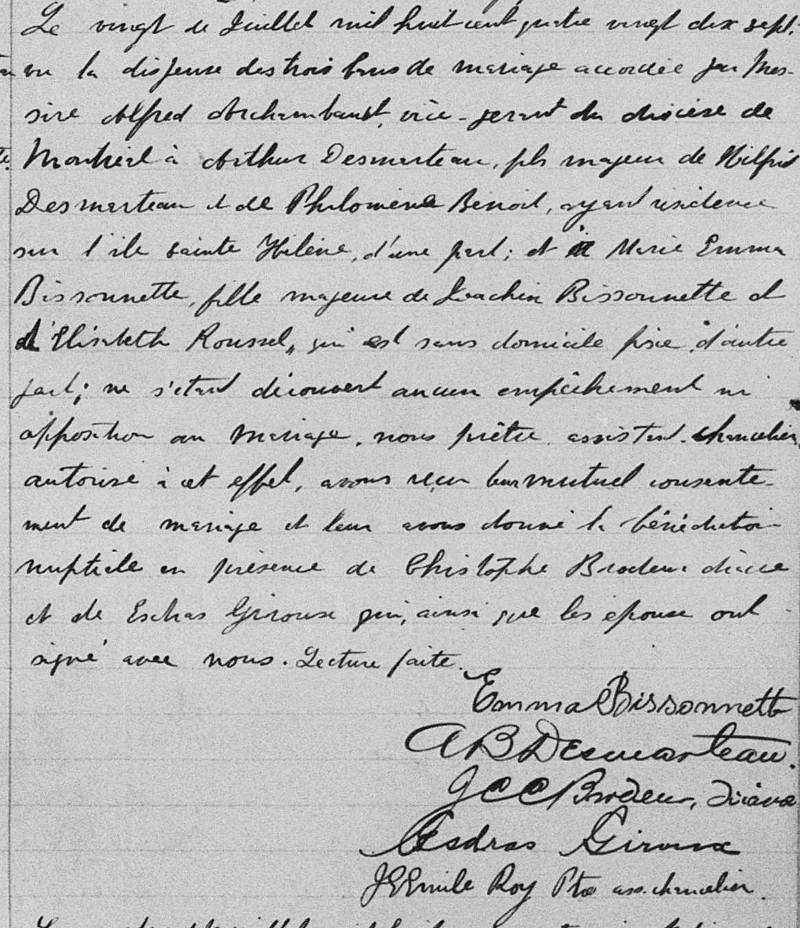 Le vingt de Juillet mil huit cent quatre vingt dix sept,
vu la dispense des trois bans de mariage accordée par Mes-
sire Alfred Archambault, vice-gerant du diocèse de
Montréal à Arthur Desmarteau, fils majeur de Wilfrid
Desmarteau et de Philomène Benoit, ayant résidence
sur l'ile Sainte Hélène, d'une part; et Marie Emma
Bissonnette, fille majeure de Joachin Bissonnette et
d'Elisabeth Roussel, qui est sans domicile fixe, d'autre
part; ne s'étant découvert aucun empêchement ni
opposition au mariage, nous prêtre assistant-chancelier,
autorisé à cet effet, avons reçu leur mutuel consente-
ment de mariage et leur avons donné la bénédiction
nuptiale en présence de Christophe Brodeur diacre
et de Esdras Giroux qui, ainsi que les époux ont
signé avec nous. Lecture faite.
Emma Bissonnette
A B Desmarteau.
J C C Brodeur, Diacre
Esdras Giroux
J E Emile Roy Ptre ass. chancelier.